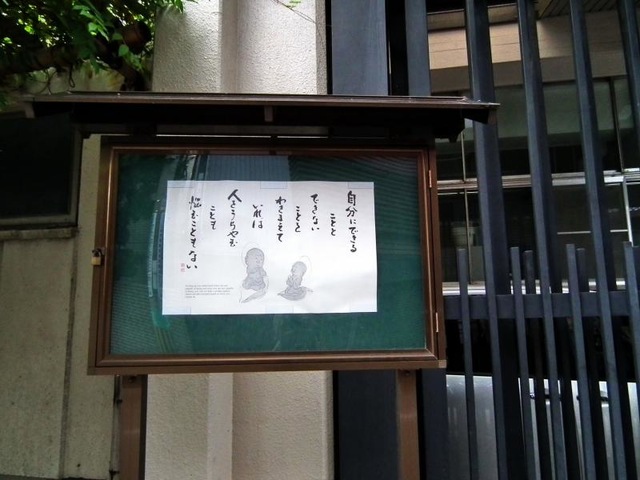 自分にできる
ことと
できない
ことを
わきまえて
いれば
人をうらやむ
ことも
悩むこともない